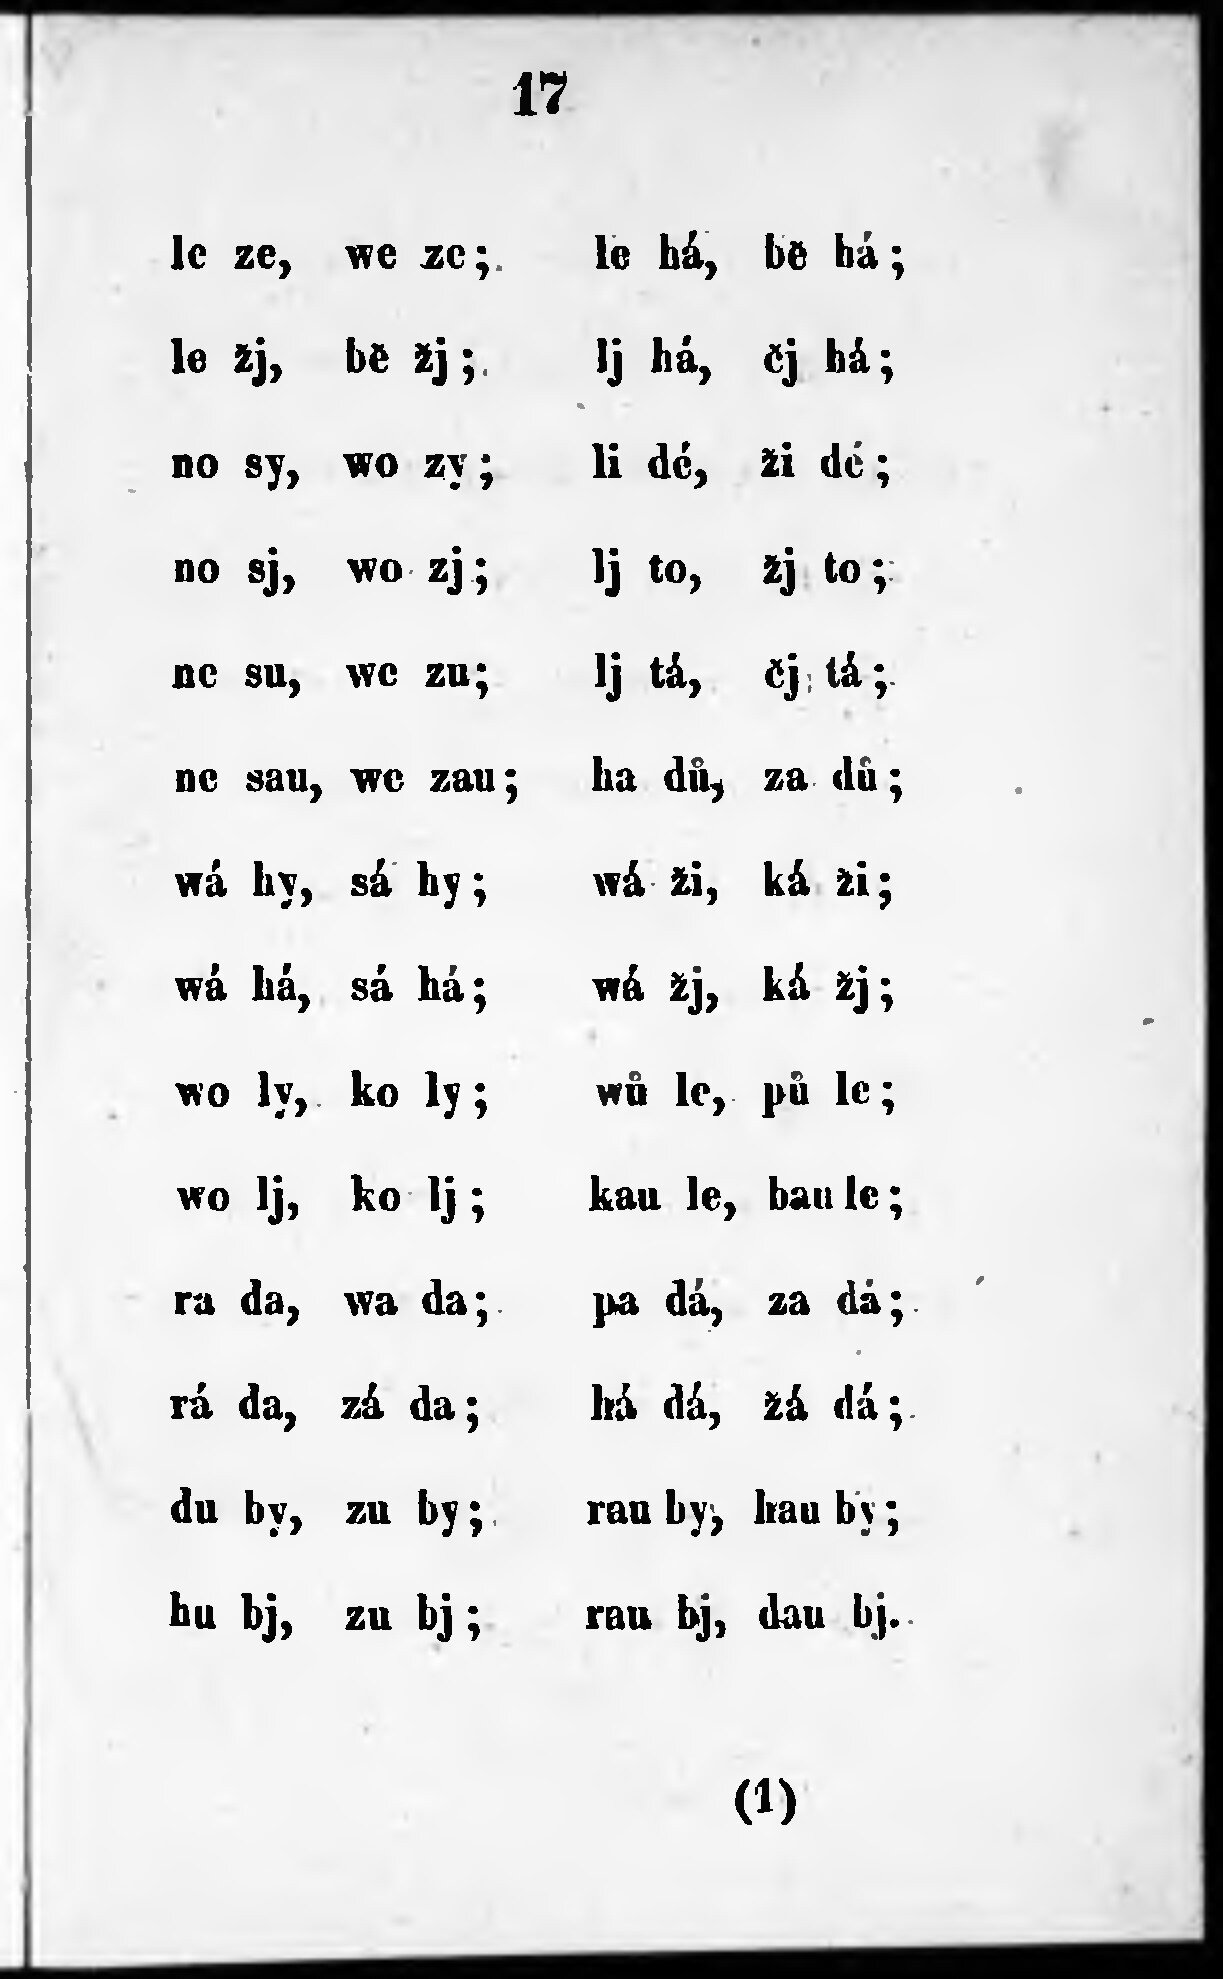 17
le ze, we ze; le há, bě há;
le žj, bě žj; lj há, čj há;
no sy, wo zy; li dé, ži dé;
no sj, wo zj; lj to, žj to;
ne su, we zu; lj tá, čj tá;
ne sau, we zau; ha dů, za dů;
wá hy, sá hy; wá ži, ká ži;
wá há, sá há; wá žj, ká žj;
wo ly, ko ly; wů le, pů le;
wo lj, ko lj; kau le, bau le;
ra da, wa da; pa dá, za dá;
rá da, zá da; há dá, žá dá;
du by, zu by; rau by, hau by;
hu bj, zu bj; rau bj, dau bj.
(1)